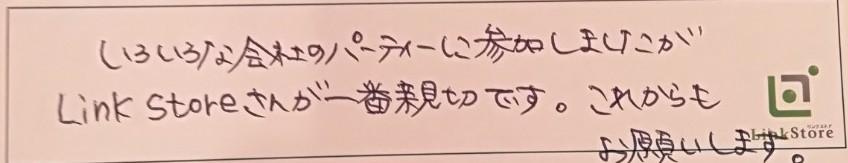 いろいろな会社のパーティーに参加しましたが
Link Storeさんが一番親切です。これからも
お願いします。
リンクストア
LinkStore